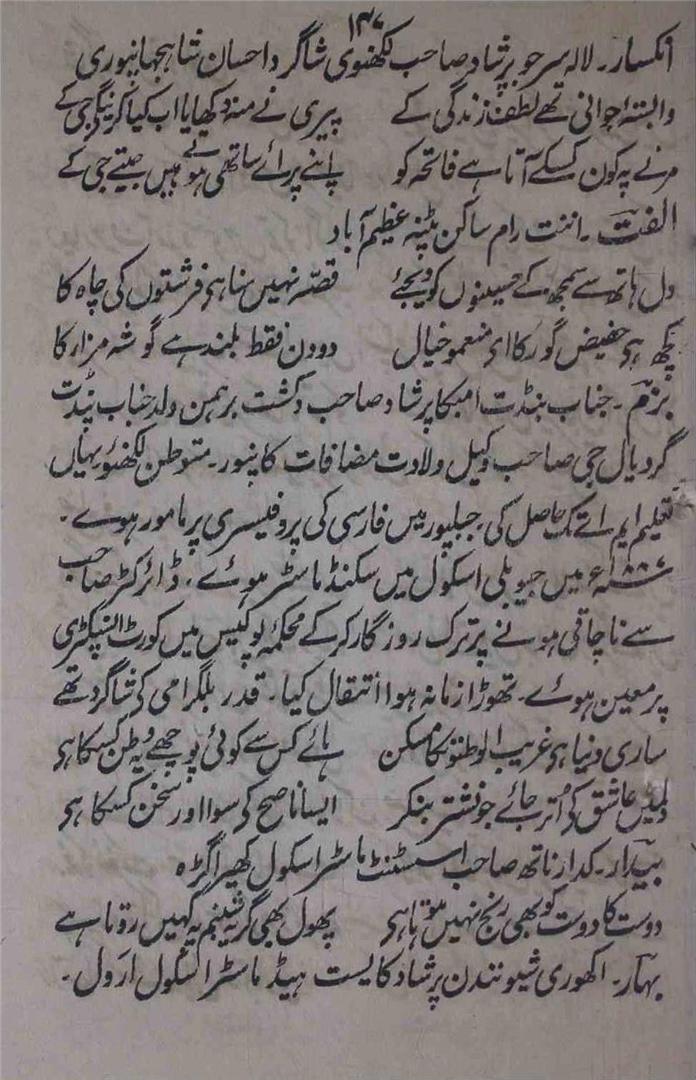 ۱۴۷
انکسار۔ لالہ سرجو پرشاد صاحب لکھنوی شاگرد احسان شاہجہانپوری
وابستہ جوانی تھے لطف زندگی کے پیری نے منہ دکھایا اب کیا کرینگے جی کے
مرنے پہ کون کسکے آتا ہے فاتحہ کو اپنے پرائے ساتھی ہوتے ہیں جیتے جی کے
الفت۔ اننت رام ساکن پٹنہ عظیم آباد
دل ہاتھ سے سمجھ کے حسینوں کو دیجئے قصّہ نہیں سنا ہی فرشتوں کی چاہ کا
کچھ ہی حضیض گور کا ای منعمو خیال دو دن فقط بلند ہے گوشہ مزار کا
بزم۔ جناب پنڈت امبکا پرشاد صاحب دکشت برہمن ولد جناب پنڈت
گردیال جی صاحب وکیل ولادت مضافات کانپور۔ متوطن لکھنؤ یہاں
تعلیم ایم اے تک حاصل کی۔ جبلپور میں فارسی کی پروفیسری پر مامور ہوے۔
۱۸۸۷ء میں جیوبلی اسکول میں سکنڈ ماسٹر ہوئے۔ ڈائرکٹر صاحب
سے ناچاقی ہونے پر ترک روزگار کر کے محکمۂ پولیس میں کورٹ انسپکٹری
پر معین ہوئے۔ تھوڑا زمانہ ہوا انتقال کیا۔ قدر بلگرامی کی شاگرد تھے
ساری دنیا ہی غریب الوطنونکا مسکن ہائے کس سے کوئی پوچھے یہ وطن کسکا ہی
دلمیں عاشق کی اُتر جائے جو نشتر بنکر ایسا ناصح کی سوا اور سخن کسکا ہی
بیدار۔ کدار ناتھ صاحب اسسٹنٹ ماسٹر اسکول کھیراگڑہ
دوست کا دوست کو بھی رنج نہیں ہوتا ہی پھول بھی گریۂ شبنم پہ کہیں روتا ہے
بہار۔ اکھوری شیو نندن پرشاد کایست ہیڈ ماسٹر اسکول ارول۔